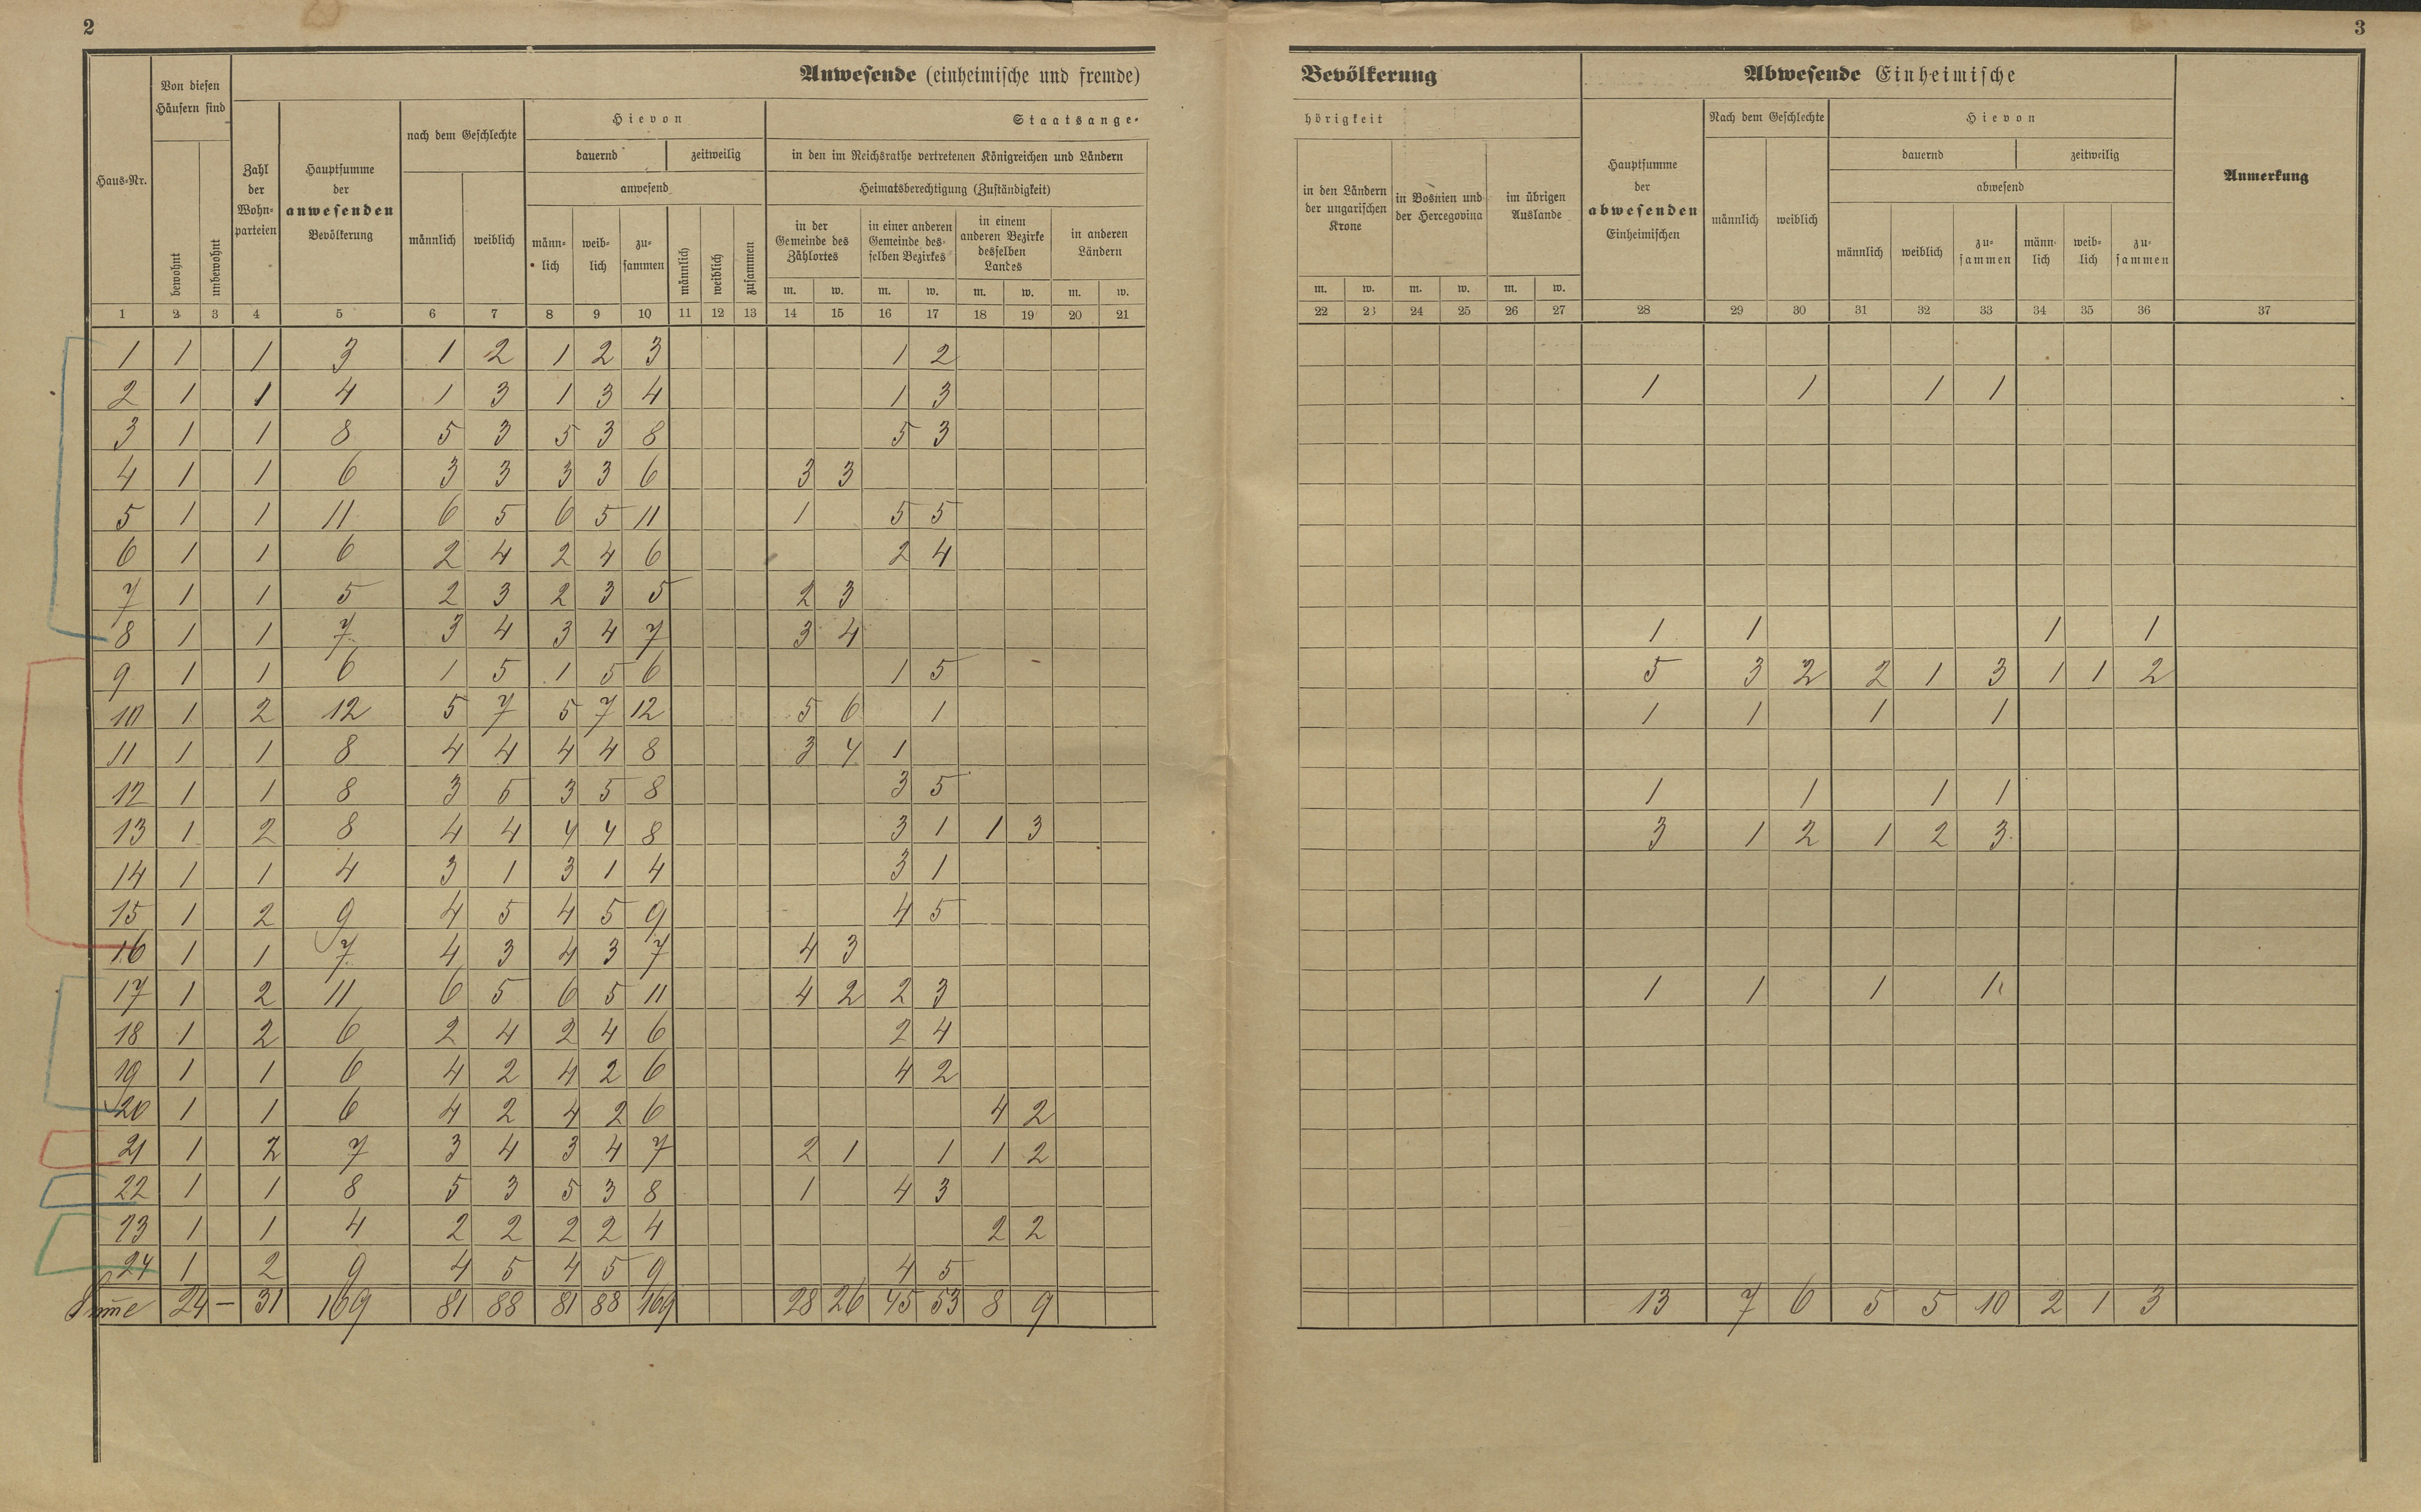 2
3
Anwesende (einheimische und fremde)
Bevölkerung
Abwesende Einheimische
Von diesen Häusern sind
Haus-Nr.
bewohnt
unbewohnt
Zahl der Wohn-parteien
Hauptsumme der anwesenden Bevölkerung
nach dem Geschlechte
männlich weiblich
Hievon
dauernd zeitweilig
anwesend
männ-lich weib-lich zu-sammen männlich weiblich zusammen
Staatsange-
hörigkeit
in den im Reichsrathe vertretenen Königreichen und Ländern
Heimatsberechtigung (Zuständigkeit)
in der Gemeinde des Zählortes
in einer anderen Gemeinde des-selben Bezirkes
in einem anderen Bezirke desselben Landes
in anderen Ländern
m. w. m. w. m. w. m. w.
in den Ländern der ungarischen Krone
in Bosnien und der Hercegovina
im übrigen Auslande
m. w. m. w. m. w.
Hauptsumme der abwesenden Einheimischen
Nach dem Geschlechte
männlich weiblich
Hievon
dauernd zeitweilig
abwesend
männlich weiblich zu-sammen männ-lich weib-lich zu-sammen
Anmerkung
1 2 3 4 5 6 7 8 9 10 11 12 13 14 15 16 17 18 19 20 21 22 23 24 25 26 27 28 29 30 31 32 33 34 35 36 37
1 1 1 3 1 2 1 2 3 1 2
2 1 1 4 1 3 1 3 4 1 3 1 1 1 1
3 1 1 8 5 3 5 3 8 5 3
4 1 1 6 3 3 3 3 6 3 3
5 1 1 11 6 5 6 5 11 1 5 5
6 1 1 6 2 4 2 4 6 2 4
7 1 1 5 2 3 2 3 5 2 3
8 1 1 7 3 4 3 4 7 3 4 1 1 1 1
9 1 1 6 1 5 1 5 6 1 5 5 3 2 2 1 3 1 1 2
10 1 2 12 5 7 5 7 12 5 6 1 1 1 1 1
11 1 1 8 4 4 4 4 8 3 4 1
12 1 1 8 3 5 3 5 8 3 5 1 1 1 1
13 1 2 8 4 4 4 4 8 3 1 1 3 3 1 2 1 2 3
14 1 1 4 3 1 3 1 4 3 1
15 1 2 9 4 5 4 5 9 4 5
16 1 1 7 4 3 4 3 7 4 3
17 1 2 11 6 5 6 5 11 4 2 2 3 1 1 1 1
18 1 2 6 2 4 2 4 6 2 4
19 1 1 6 4 2 4 2 6 4 2
20 1 1 6 4 2 4 2 6 4 2
21 1 2 7 3 4 3 4 7 2 1 1 1 2
22 1 1 8 5 3 5 3 8 1 4 3
23 1 1 4 2 2 2 2 4 2 2
24 1 2 9 4 5 4 5 9 4 5
Sum̄e 24 — 31 169 81 88 81 88 169 28 26 45 53 8 9 13 7 6 5 5 10 2 1 3